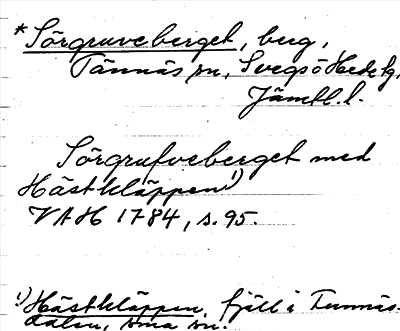 *Sörgruveberget, berg,
Tännäs sn, Svegs o Hede tg,
Jämtl. l.
Sörgrufveberget med
Hästkläppen¹)
VAH 1784, s. 95.
¹) Hästkläppen, fjäll i Tennäs-
dalen, sma sn.